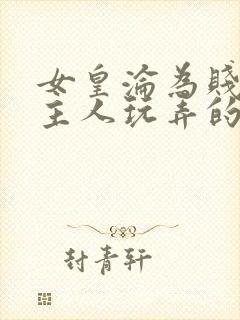 女皇淪為賤
主人玩弄的
封青軒